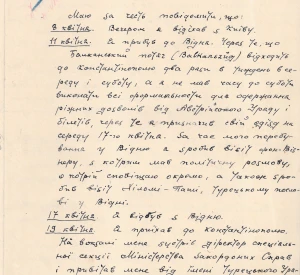 Маю за честь повідомити, що:
8 квітня. Вечером я відїхав з Київу.
11 квітня. Я прибув до Відня. Через те, що
Балканський потяг (Балканцуг) відходить
до Константинополю два рази в тиждень в се-
реду і суботу, а я не мав часу до суботи
виконати всі формальности для одержання
різних дозволів від Австрійського Уряду і
білетів, через те я призначив свій відїзд на
середу 17-го квітня. За час мого перебу-
вання у Відню я зробив візіт
з котрим мав політичну розмову,
о котрій сповіщаю окремо, а також зро-
бив візіт Хільмі-Паші, Турецькому пос-
ві у Відні.
17 квітня я відбув з Відню.
19 квітня я приїхав до Константинополю.
На вокзалі мене зустрів Директор спеціяль-
ної секції Міністерства Закордоних Справ
і привітав мене від імені Турецького Уря-